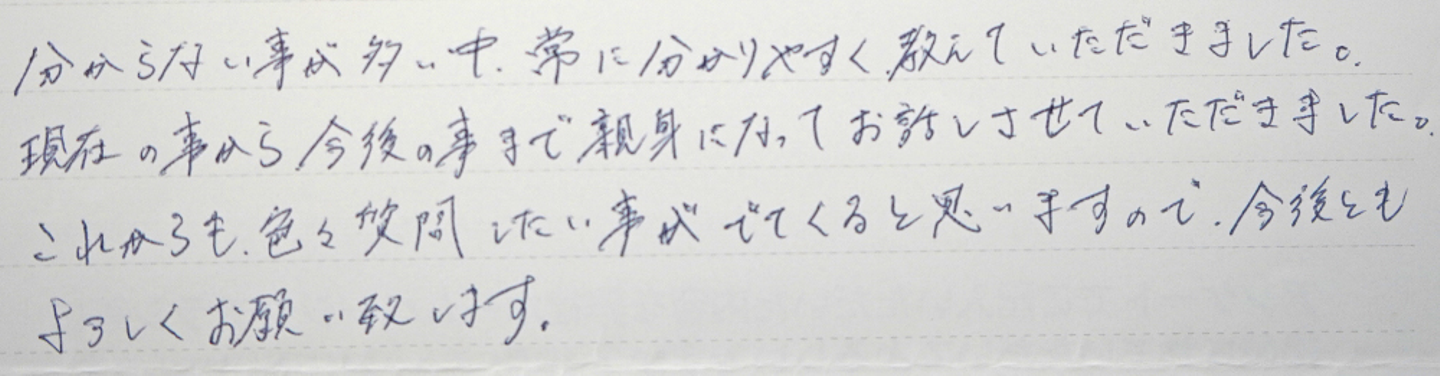 分からない事が多い中、常に分かりやすく教えていただきました。
現在の事から今後の事まで親身になってお話しさせていただきました。
これからも、色々質問したい事がでてくると思いますので、今後とも
よろしくお願い致します。